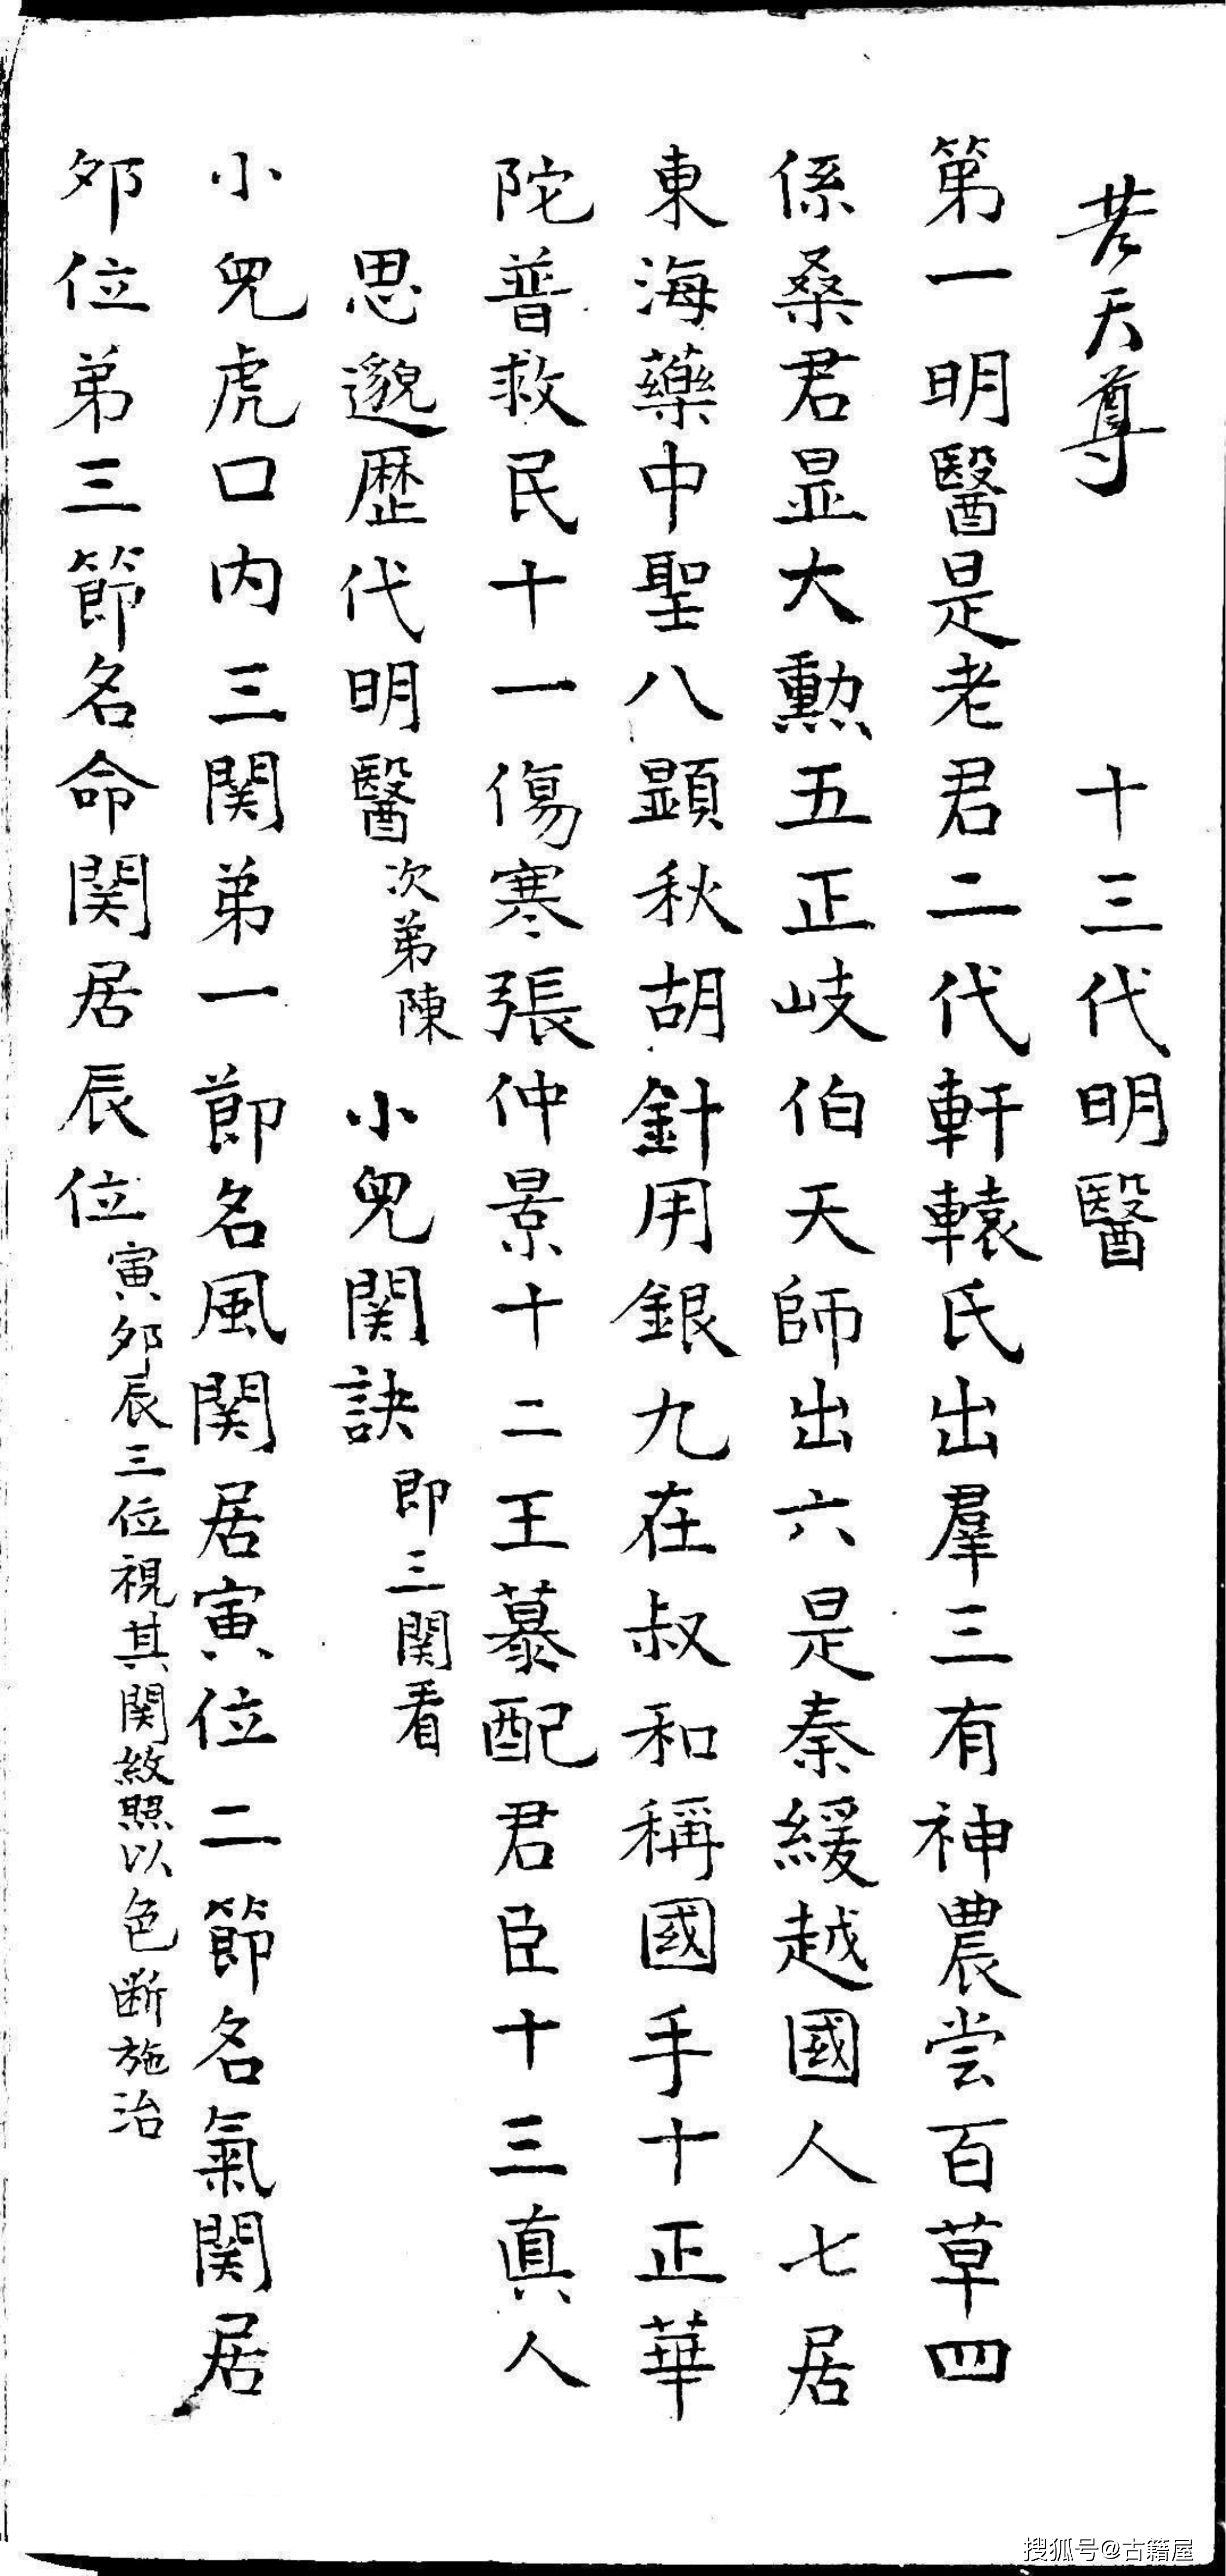 苦天尊　十三代明醫
第一明醫是老君二代軒轅氏出羣三有神農尝百草四
係桑君显大勲五正岐伯天師出六是秦緩越國人七居
東海藥中聖八顕秋胡針用銀九在叔和稱國手十正華
陀普救民十一傷寒張仲景十二王慕配君臣十三真人
思邈歴代明醫次弟陳　小兒関訣即三関看
小兒虎口内三関弟一節名風関居寅位二節名氣関居
夘位弟三節名命関居辰位寅夘辰三位視其関紋照以色断施治
搜狐号@古籍屋